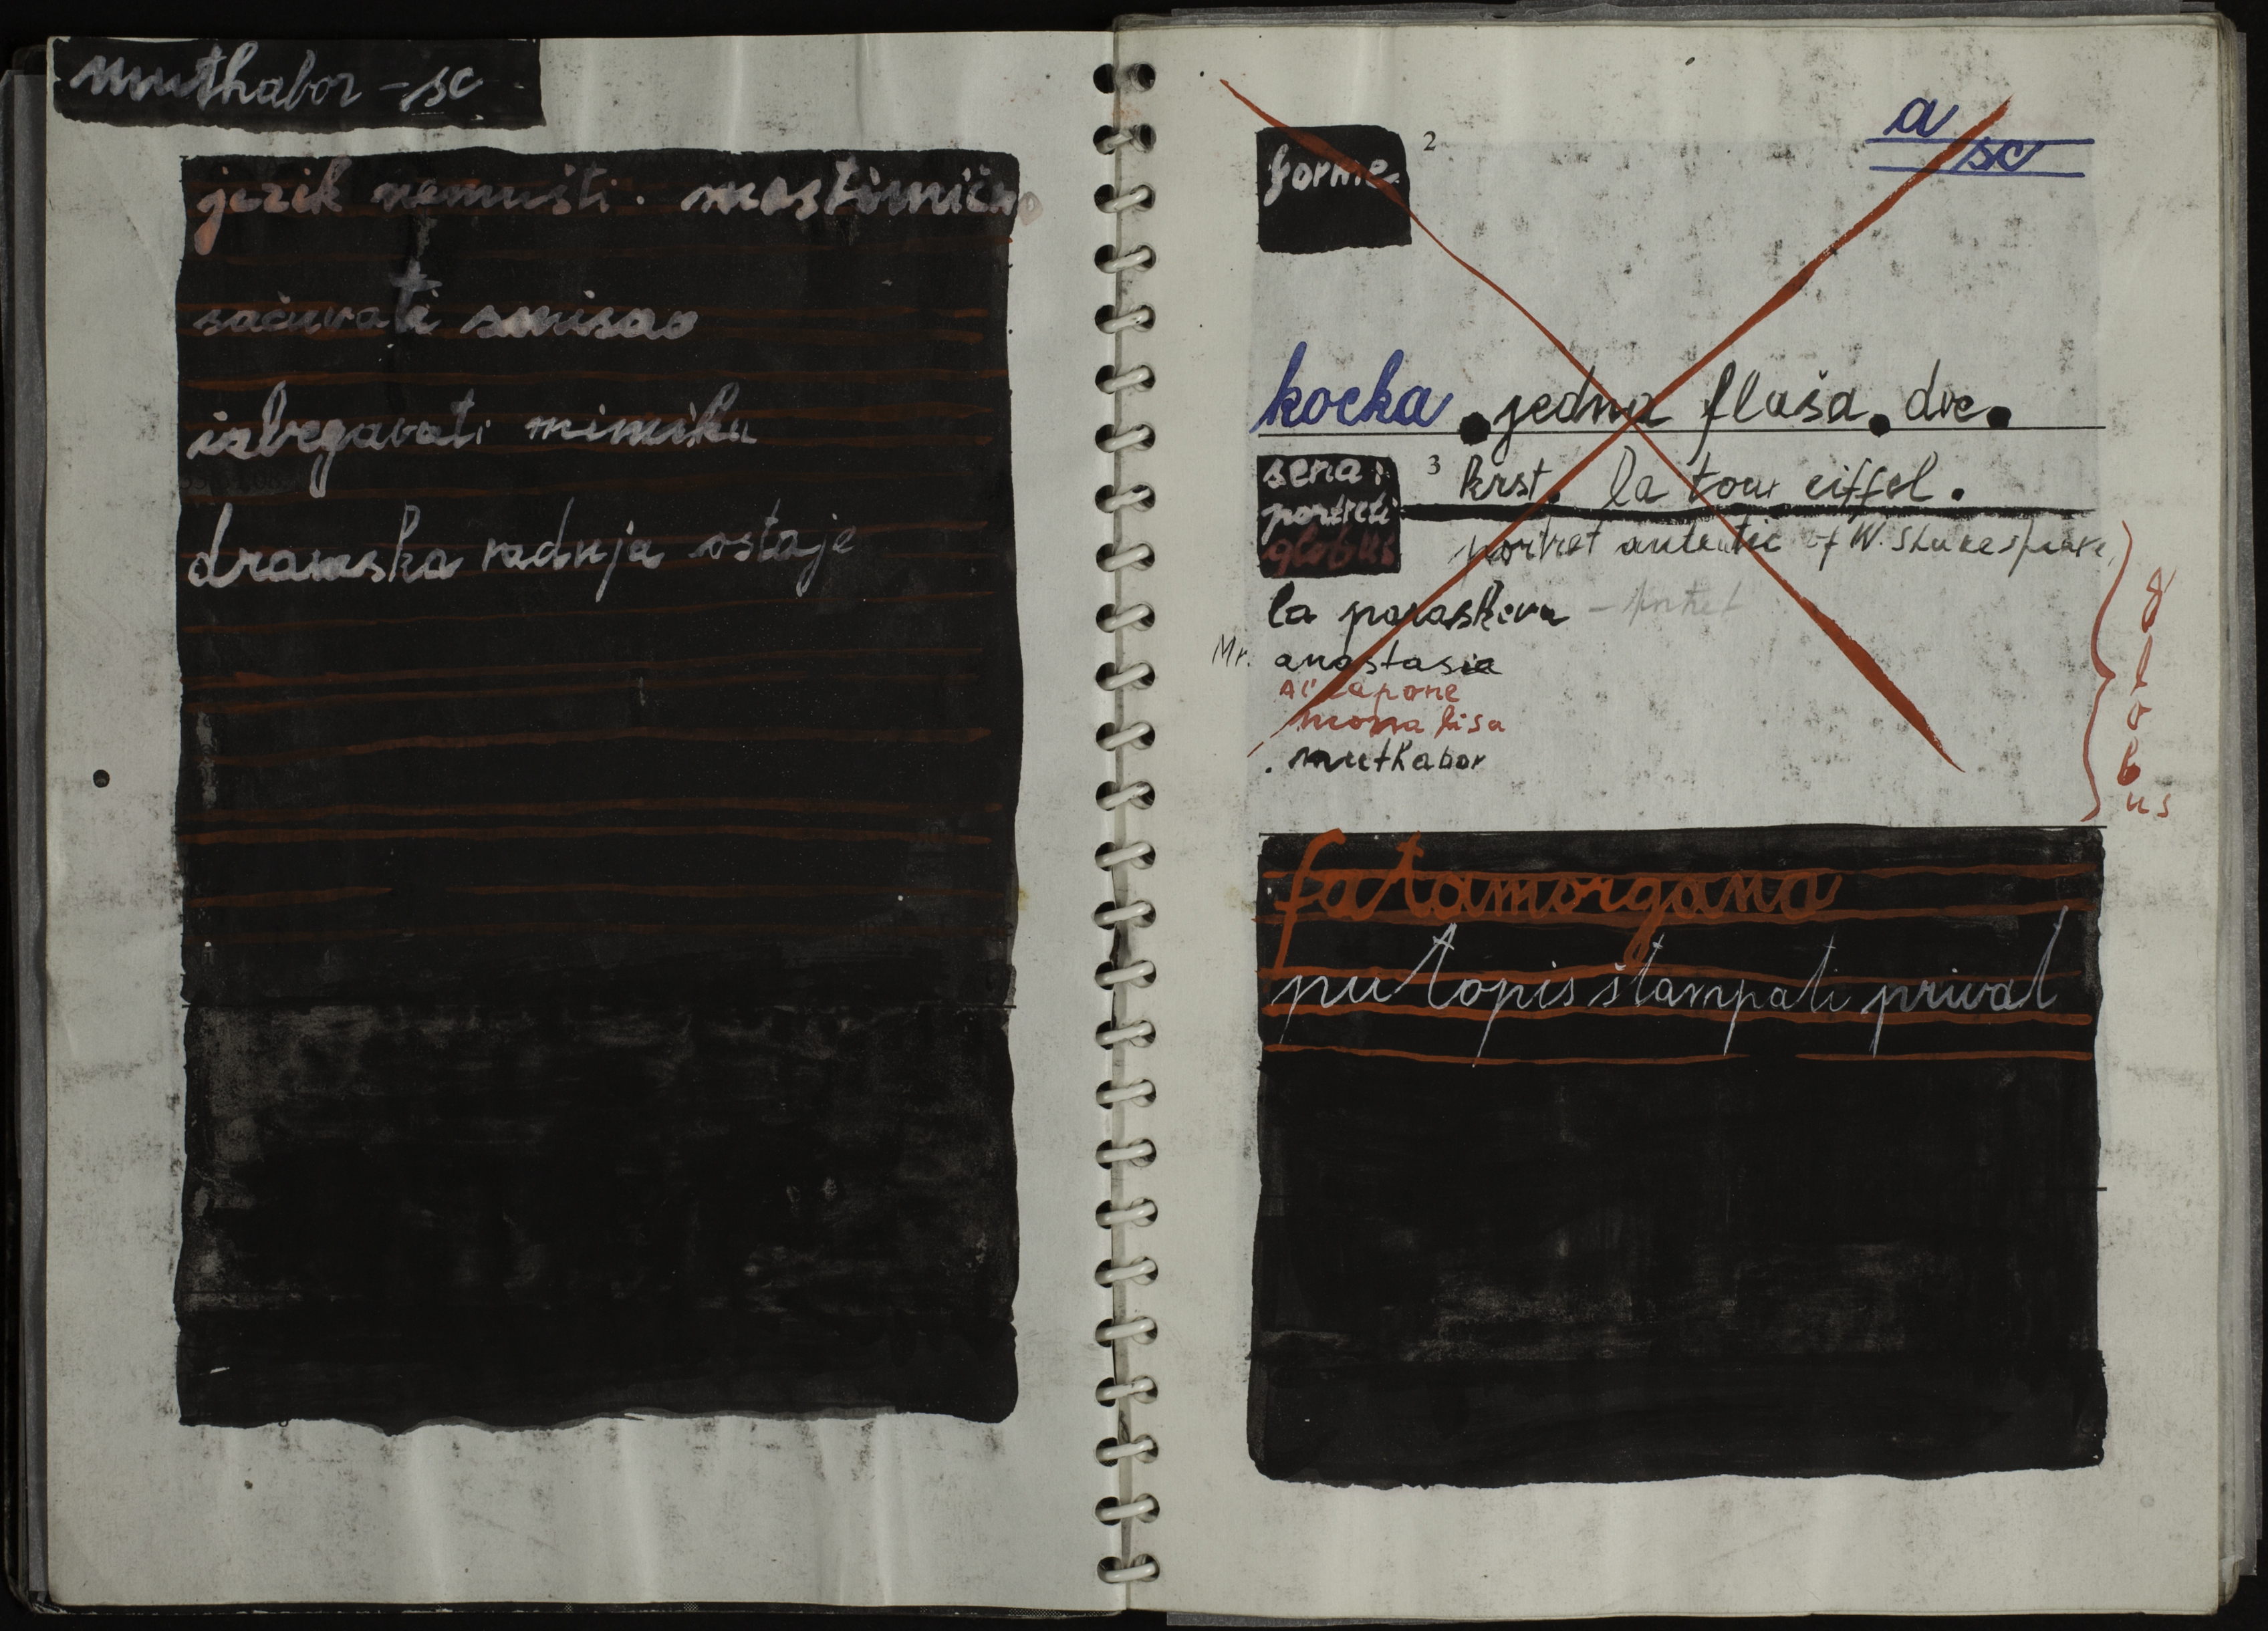 muthabor - sc
jezik nemušti. mestimično
sačuvati smisao
izbegavati mimiku
dramska radnja ostaje
a
sc
forme.
2
kocka . jedna flaša. dve.
sena:
portreti
globus
3
krst. la tour eiffel.
portret autentic of W. Shakespeare
la paraskeva - portret
Mr. anastasia
Al capone
mona lisa
. muthabor
globus
fatamorgana
putopis štampati privat